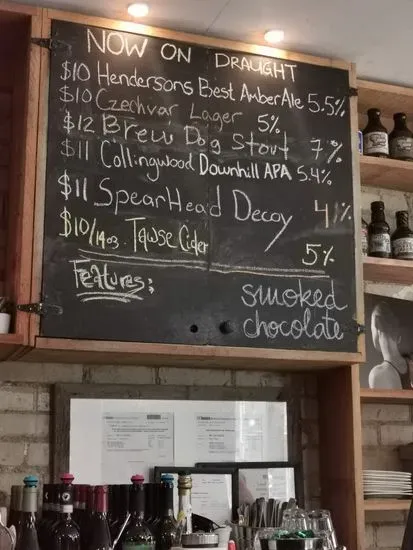 NOW ON DRAUGHT
$10 Hendersons Best Amber Ale 5.5%
$10 Czechvar Lager 5%
$12 Brew Dog Stout 7%
$11 Collingwood Downhill APA 5.4%
$11 SpearHead Decoy 4%
$10/14oz. Tawse Cider 5%
Features:
smoked
chocolate